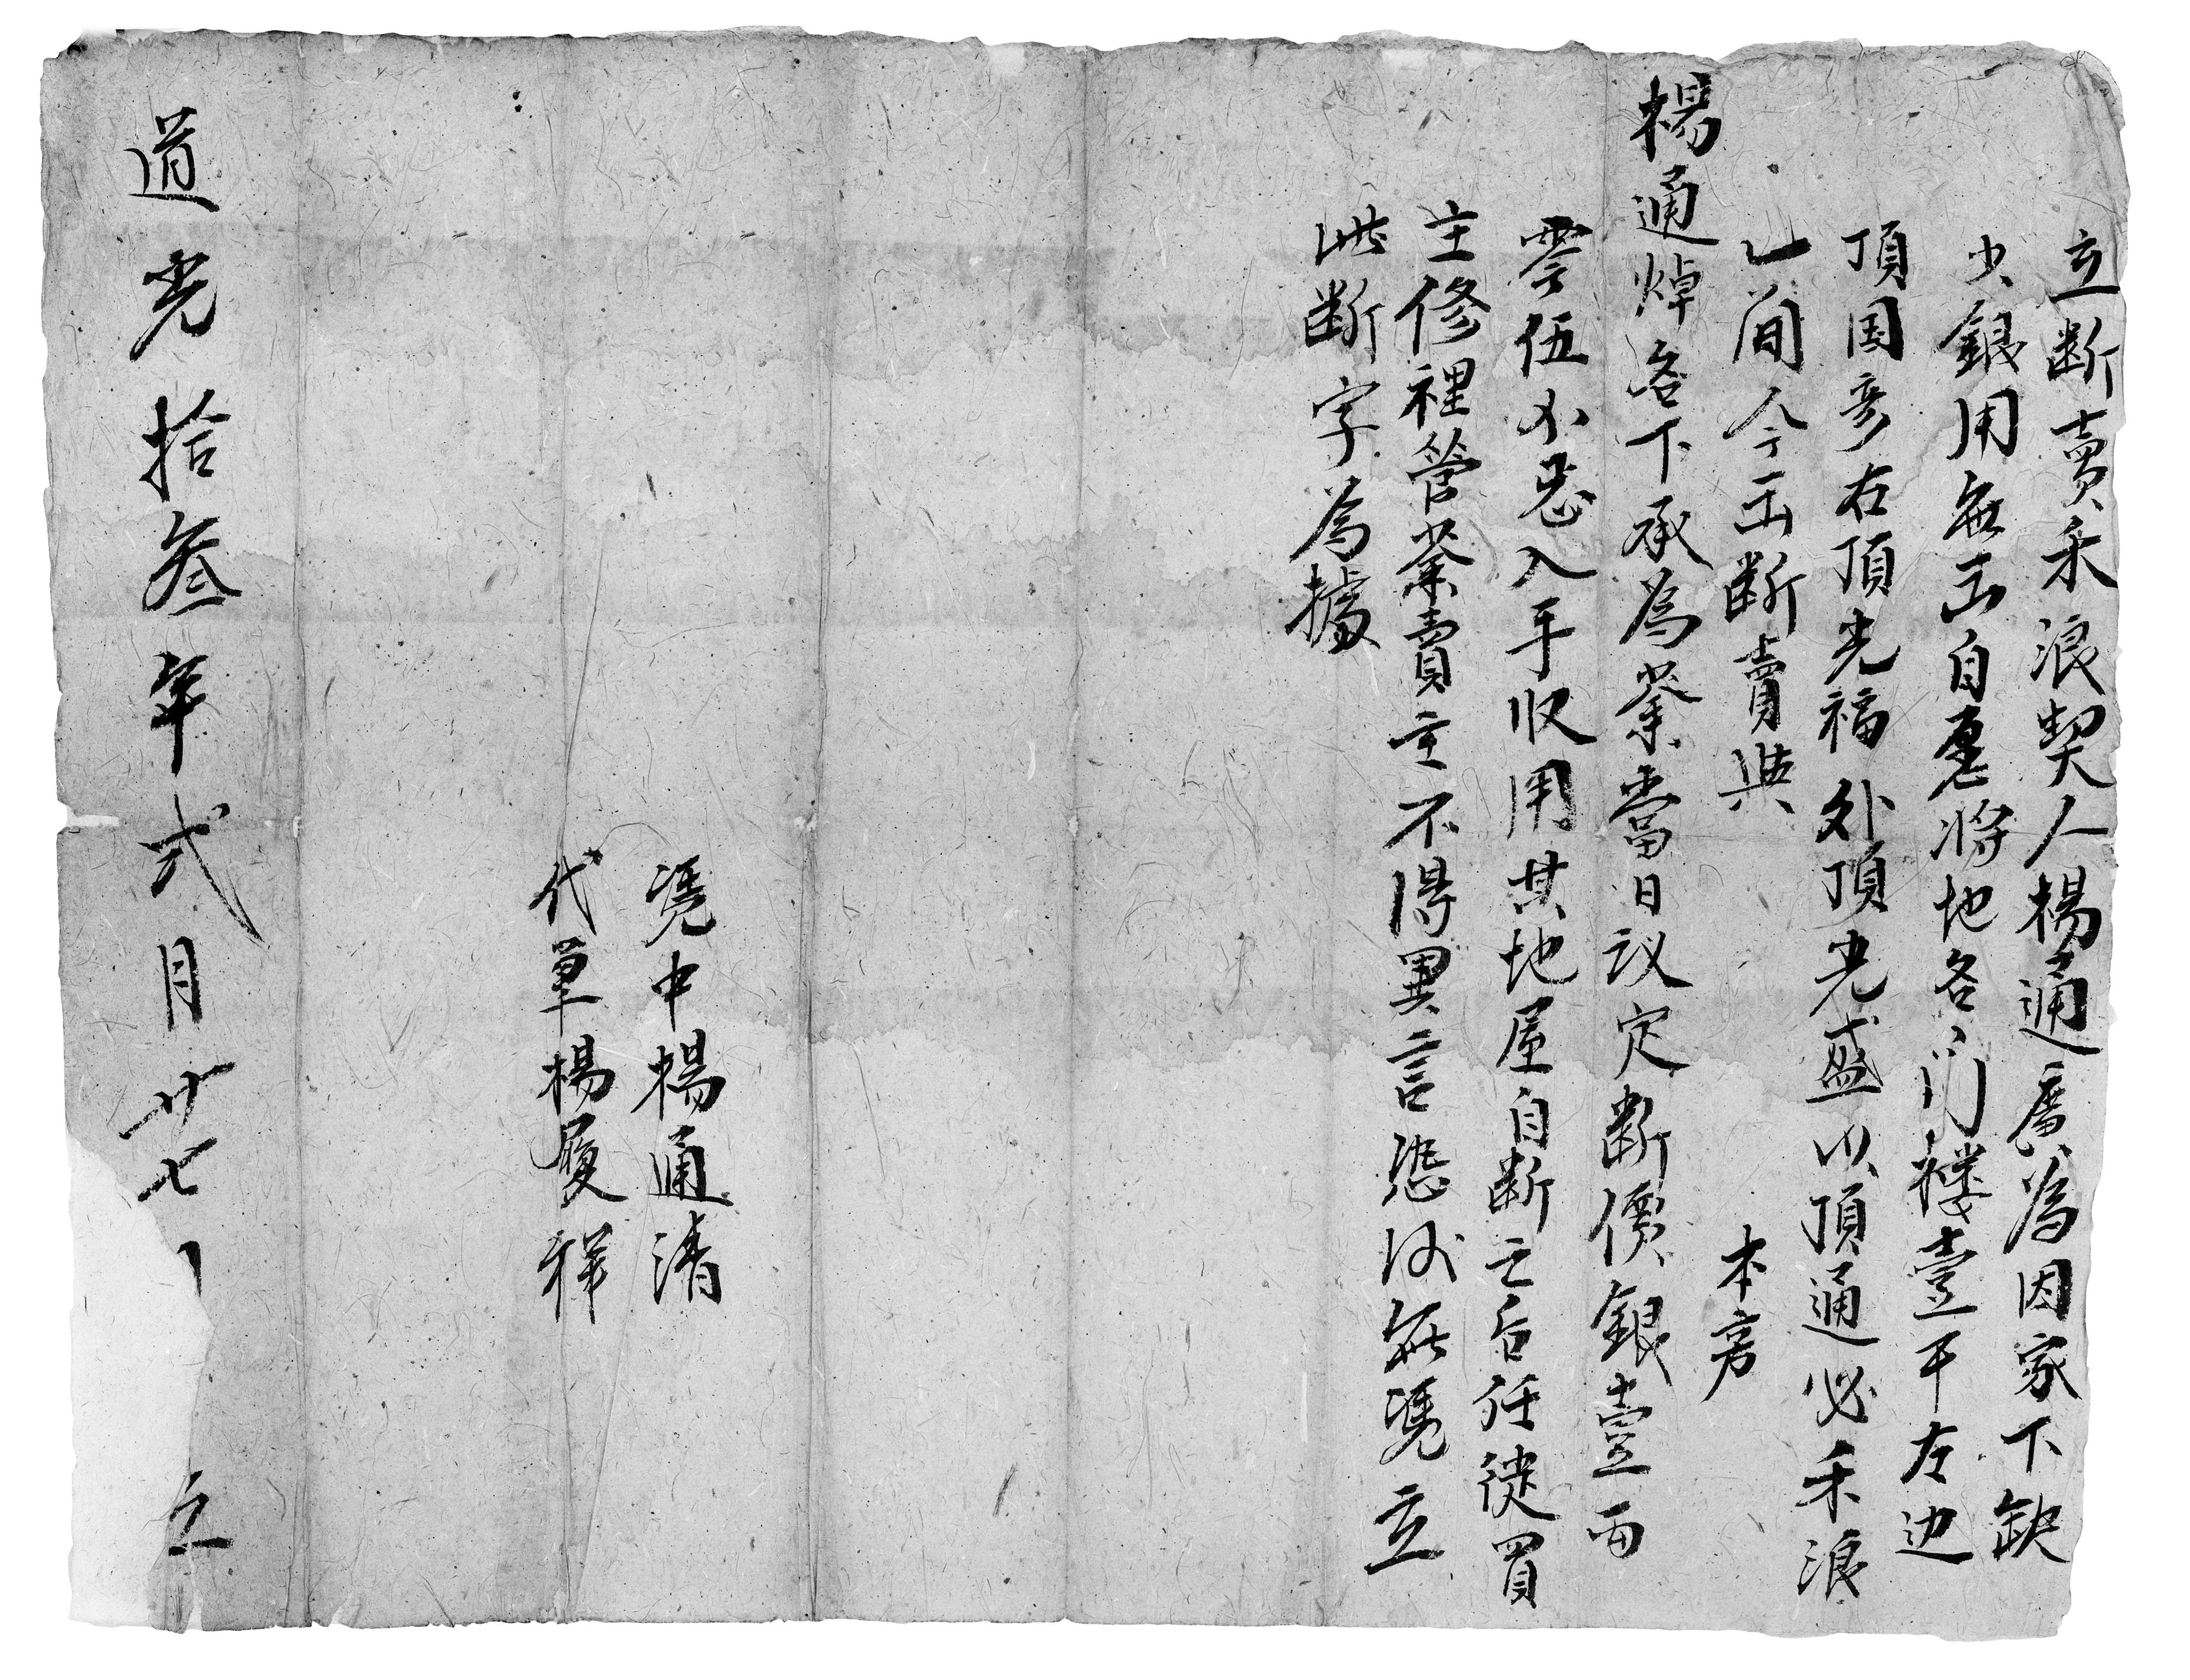 立断賣禾浪契人楊通廣為因家下缺
少銀用無出自愿將地名门楼壹干左边
頂国彦右頂光福外頂光盛以頂通必禾浪
乙间今出断賣與
本房
楊通焯名下承為業當日议定断價銀壹両
零伍分忽入手収用其地屋自断之后任従買
主修裡管業賣主不得異言恐後無凴立
此断字為據
凴中楊通清
代筆楊履祥
道光拾叁年弍月廿七日 立